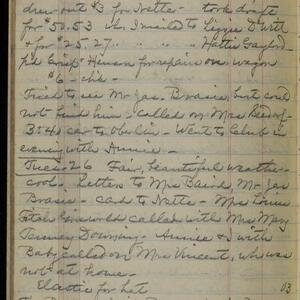 drew out $3 for Nettie - took draft
for $50.53 ch. I mailed to Lizzie D. Witt
& for $25.27 " " " " Hattie Gaylord
p'd Henson for repairs on wagon
$6 - ch.
Tried to see Mr Jas. Brasie, but could
not find him - called on Mrs
3:40 car to Oberlin - Went to Club in
evening with Annie -
Tues. 26 Fair, beautiful weather
cool. Letters to Mrs Baird, Mr Jas
Brasie - card to Nettie - Mrs Louise
Fitch called with Mrs Mary
Downing - Annie & I with
Baby called on Mrs Vincent, who was
not at home -
Elastic for hat .03